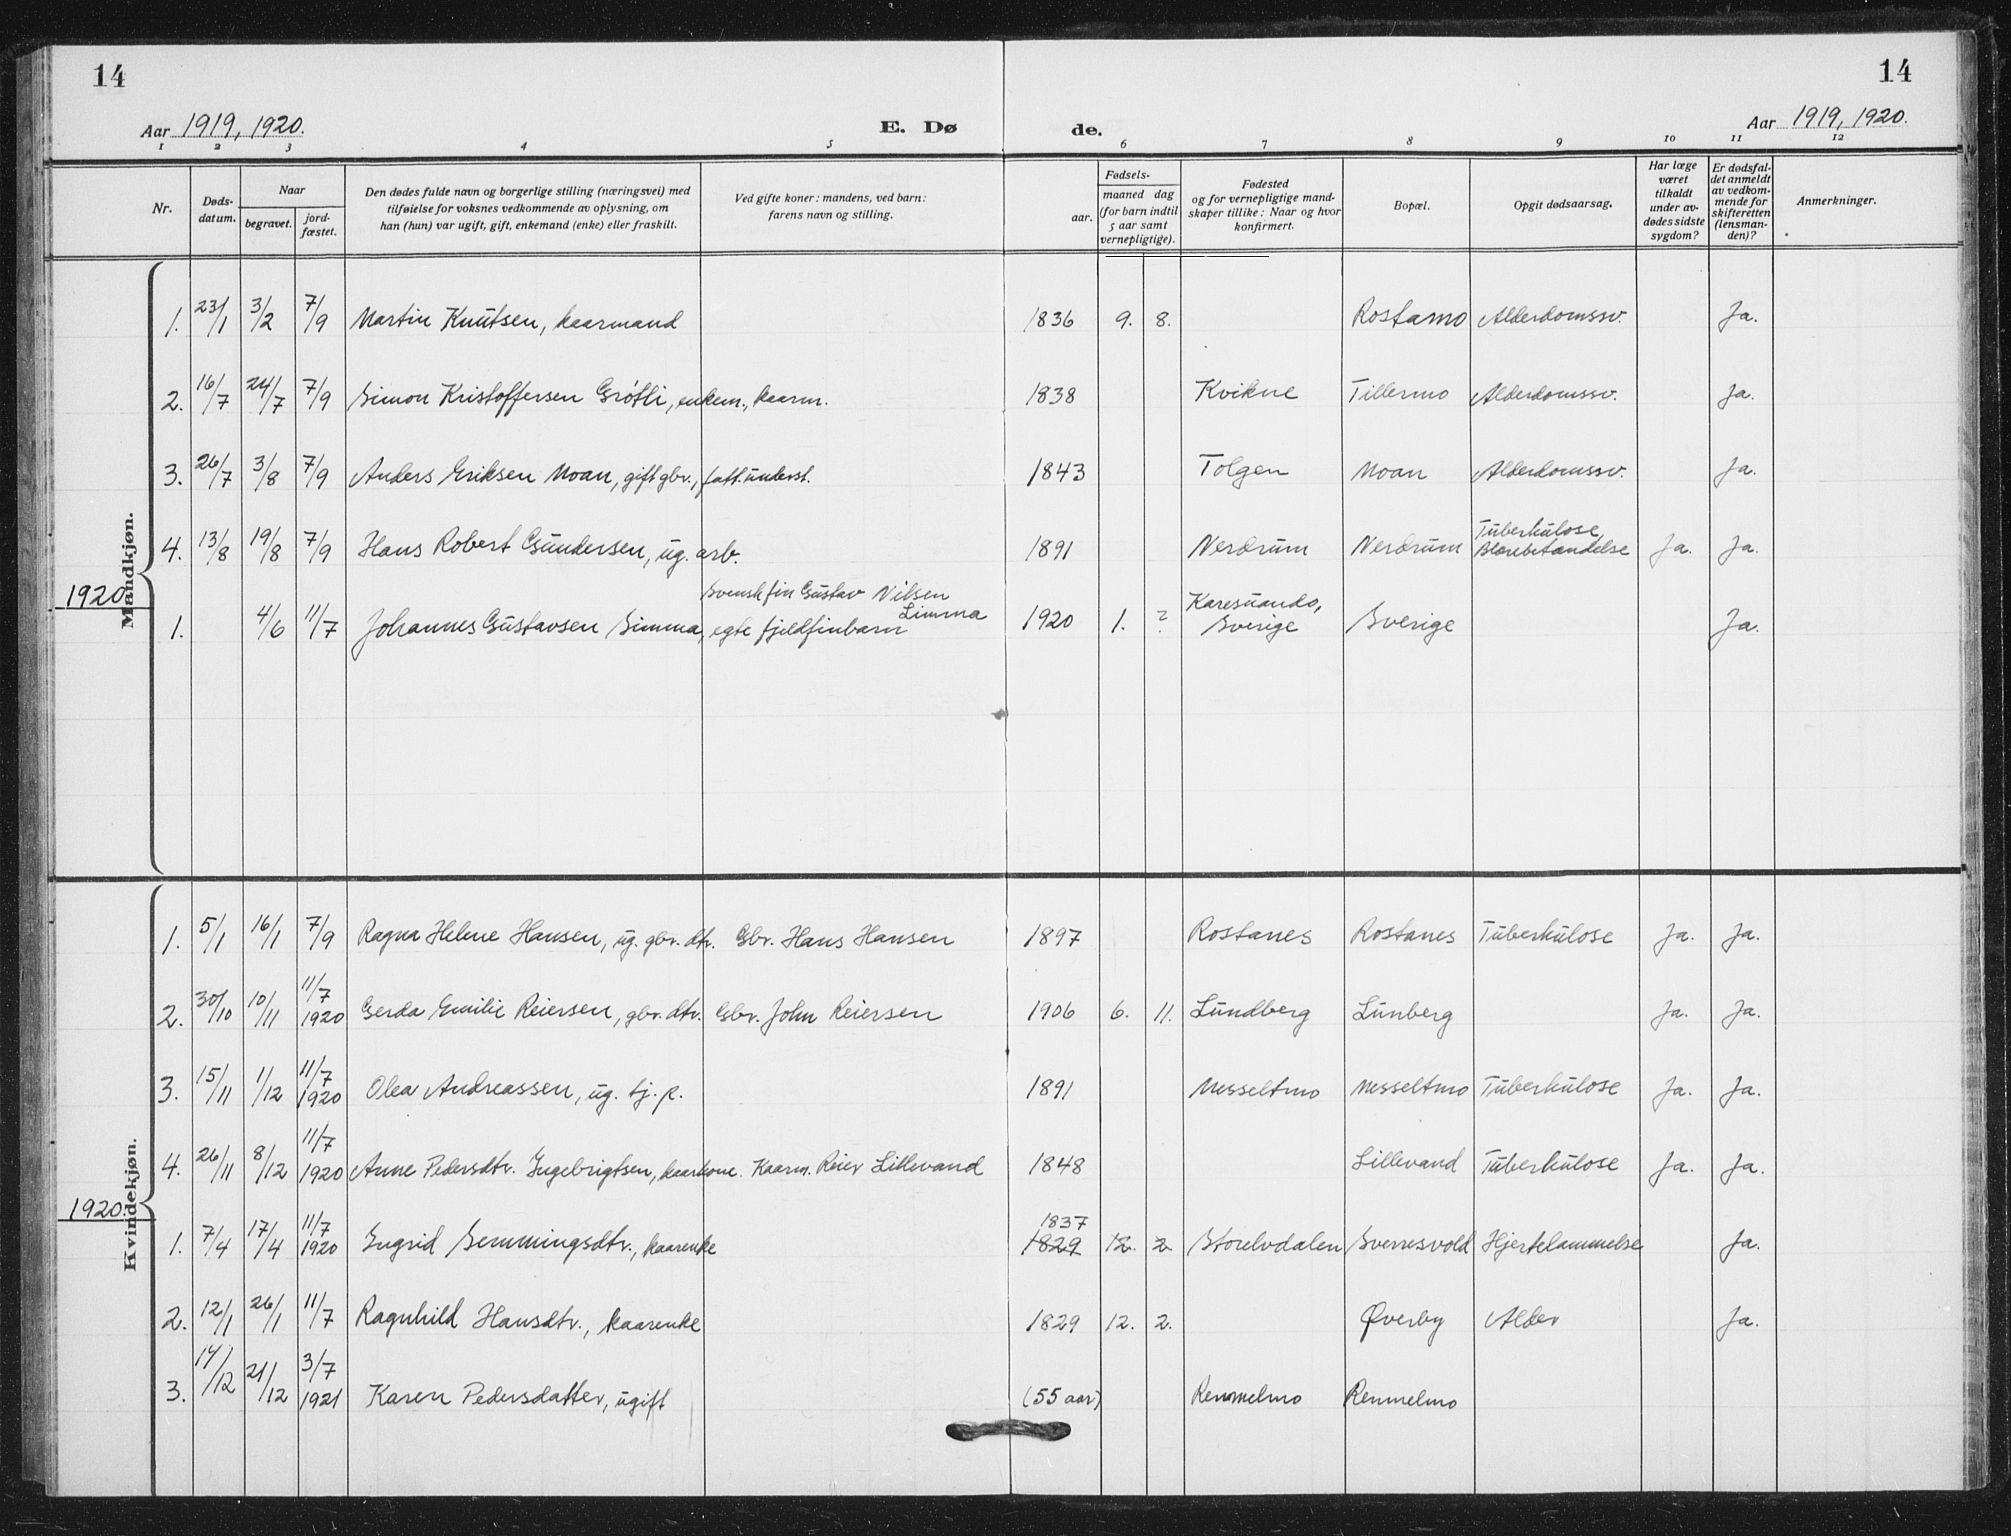 14
14
Aar 1919, 1920.
E. Dø
de.
Aar 1919, 1920.
1 2 3 4 5 6 7 8 9 10 11 12
Nr.
Døds-
datum.
Naar
begravet.
jord-
fæstet.
Den dødes fulde navn og borgerlige stilling (næringsvei) med
tilføielse for voksnes vedkommende av oplysning, om
han (hun) var ugift, gift, enkemand (enke) eller fraskilt.
Ved gifte koner: mandens, ved barn:
farens navn og stilling.
Fødsels-
aar.
maaned dag
(for barn indtil
5 aar samt
vernepligtige).
Fødested
og for vernepligtige mand-
skaper tillike: Naar og hvor
konfirmert.
Bopæl.
Opgit dødsaarsag.
Har læge
været
tilkaldt
under av-
dødes sidste
sygdom?
Er dødsfal-
det anmeldt
av vedkom-
mende for
skifteretten
(lensman-
den)?
Anmerkninger.
Mandkjøn.
1. 23/1 3/2 7/9 Martin Knutsen, kaarmand 1836 9. 8. Rostamo Alderdomssv. Ja.
2. 16/7 24/7 7/9 Simon Kristoffersen Grøtli, enkem., kaarm. 1838 Kvikne Tillermo Alderdomssv. Ja.
3. 26/7 3/8 7/9 Anders Eriksen Moan, gift gbr., fatt. underst. 1843 Tolgen Moan Alderdomssv. Ja.
4. 13/8 19/8 7/9 Hans Robert Gundersen, ug. arb. 1891 Nerdrum Nerdrum Tuberkulose, Blærebetændelse Ja. Ja.
1920
Svensk fin Gustav Nilsen
Simma
1. 4/6 11/7 Johannes Gustavsen Simma, egte fjeldfinbarn 1920 1. ? Karesuando, Sverige Sverige Ja.
Kvindekjøn.
1. 5/1 16/1 7/9 Ragna Helene Hansen, ug. gbr. dtr. Gbr. Hans Hansen 1897 Rostanes Rostanes Tuberkulose Ja. Ja.
2. 30/10 10/11 11/7 1920 Gerda Emilie Reiersen, gbr. dtr. Gbr. John Reiersen 1906 6. 11. Lundberg Lunberg Ja. Ja.
3. 15/11 1/12 11/7 1920 Olea Andreassen, ug. tj. p. 1891 Messeltmo Messeltmo Tuberkulose Ja. Ja.
4. 26/11 8/12 11/7 1920 Anne Pedersdtr. Ingebrigtsen, kaarkone. Kaarm. Reier Lillevand 1848 Lillevand Tuberkulose Ja. Ja.
1920.
1837
1. 7/4 17/4 11/7 1920 Ingrid Semmingsdtr., kaarenke 1829 12. 2. Storelvdalen Sverresvold Hjertelammelse Ja.
2. 12/1 26/1 11/7 Ragnhild Hansdtr., kaarenke 1829 12. 2. Øverby Alder Ja.
3. 14/12 21/12 3/7 1921 Karen Pedersdatter, ugift (55 aar) Remmelmo Remmelmo